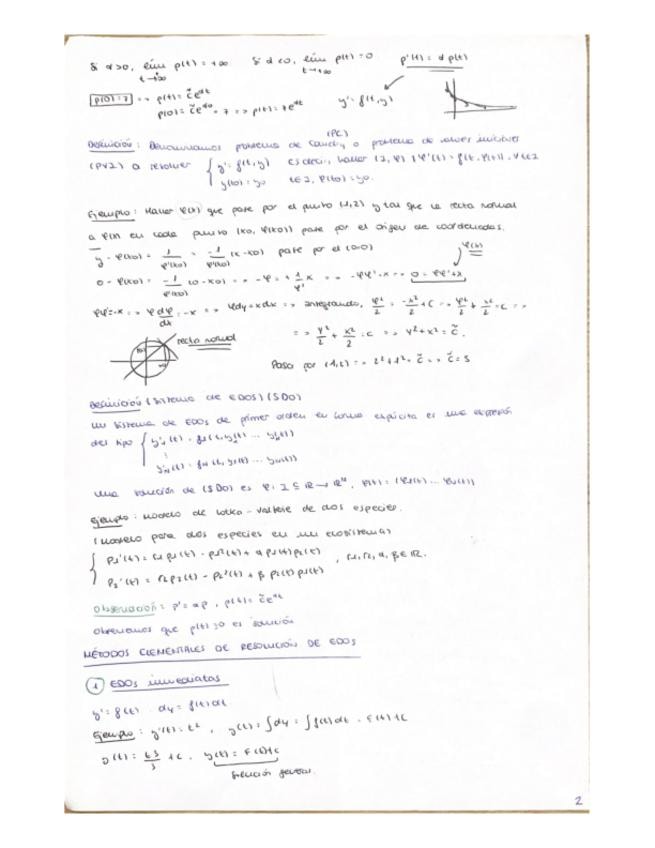 Si α>0, lím p(t) = +∞ Si α<0, lím p(t)=0 p'(t) = α p(t)
t→+∞ t→+∞
p(0)=7 => p(t) = c̃e^αt y' = f(t,y)
p(0) = c̃e^α0 = 7 => p(t) = 7e^αt
(PC)
Definición: Denominamos problema de Cauchy o problema de valores iniciales
(PVI) a resolver { y' = f(t,y) es decir, hallar (I, φ) / φ'(t) = f(t, φ(t)), ∀t∈I
y(t0) = y0 t∈I, φ(t0) = y0.
Ejemplo: Hallar φ(x) que pase por el punto (1,2) y tal que la recta normal
a φ(x) en cada punto (x0, φ(x0)) pase por el origen de coordenadas.
y - φ(x0) = -1/φ'(x0) (x-x0) pase por el (0,0) φ(x)
0 - φ(x0) = -1/φ'(x0) (0-x0) => -φ = +1/φ' x => -φφ' = x => 0 = φφ'+x
φφ' = -x => φ dφ/dx = -x => φdφ = -xdx => integrando, φ²/2 = -x²/2 + C => φ²/2 + x²/2 = C =>
=> y²/2 + x²/2 = C => y²+x² = c̃.
recta normal
Pasa por (1,2) => 2²+1² = c̃ => c̃ = 5
Definición (Sistema de EDOs) (SDO)
Un sistema de EDOs de primer orden en forma explícita es una expresión
del tipo { y'1(t) = f1(t, y1(t) ... yN(t))
⋮
y'N(t) = fN(t, y1(t) ... yN(t))
Una solución de (SDO) es φ: I ⊆ ℝ → ℝᴺ, φ(t) = (φ1(t) ... φN(t))
Ejemplo: modelo de Lotka-Volterra de dos especies.
(modelo para dos especies en un ecosistema)
{ p1'(t) = r1 p1(t) - p1²(t) + α p1(t)p2(t) , r1, r2, α, β ∈ ℝ.
p2'(t) = r2 p2(t) - p2²(t) + β p2(t)p1(t)
Observación: p' = αp, p(t) = c̃e^αt
Observamos que p(t)=0 es solución
MÉTODOS ELEMENTALES DE RESOLUCIÓN DE EDOS
1 EDOs inmediatas
y' = f(t) dy = f(t)dt
Ejemplo: y'(t) = t², y(t) = ∫dy = ∫f(t)dt = F(t)+C
y(t) = t³/3 + C. y(t) = F(t)+C
Solución general.
2